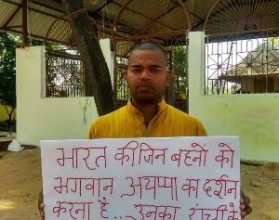 भारत की जिन बहनों को
भगवान अयप्पा का दर्शन
करना है... उनका